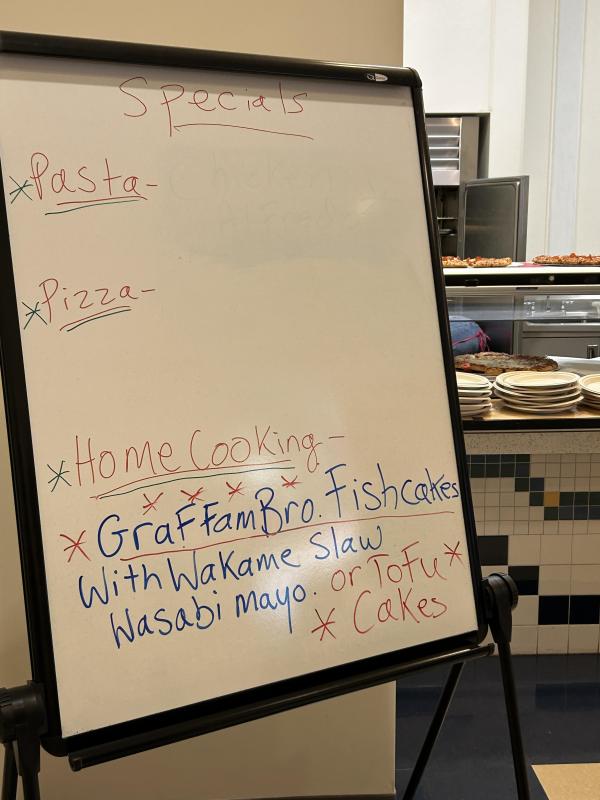 Specials
*Pasta-
Chicken
Alfredo
*Pizza-
*Home Cooking-
* * * *
*GraffamBro. Fishcakes
With Wakame Slaw
Wasabi mayo. or Tofu*
* Cakes